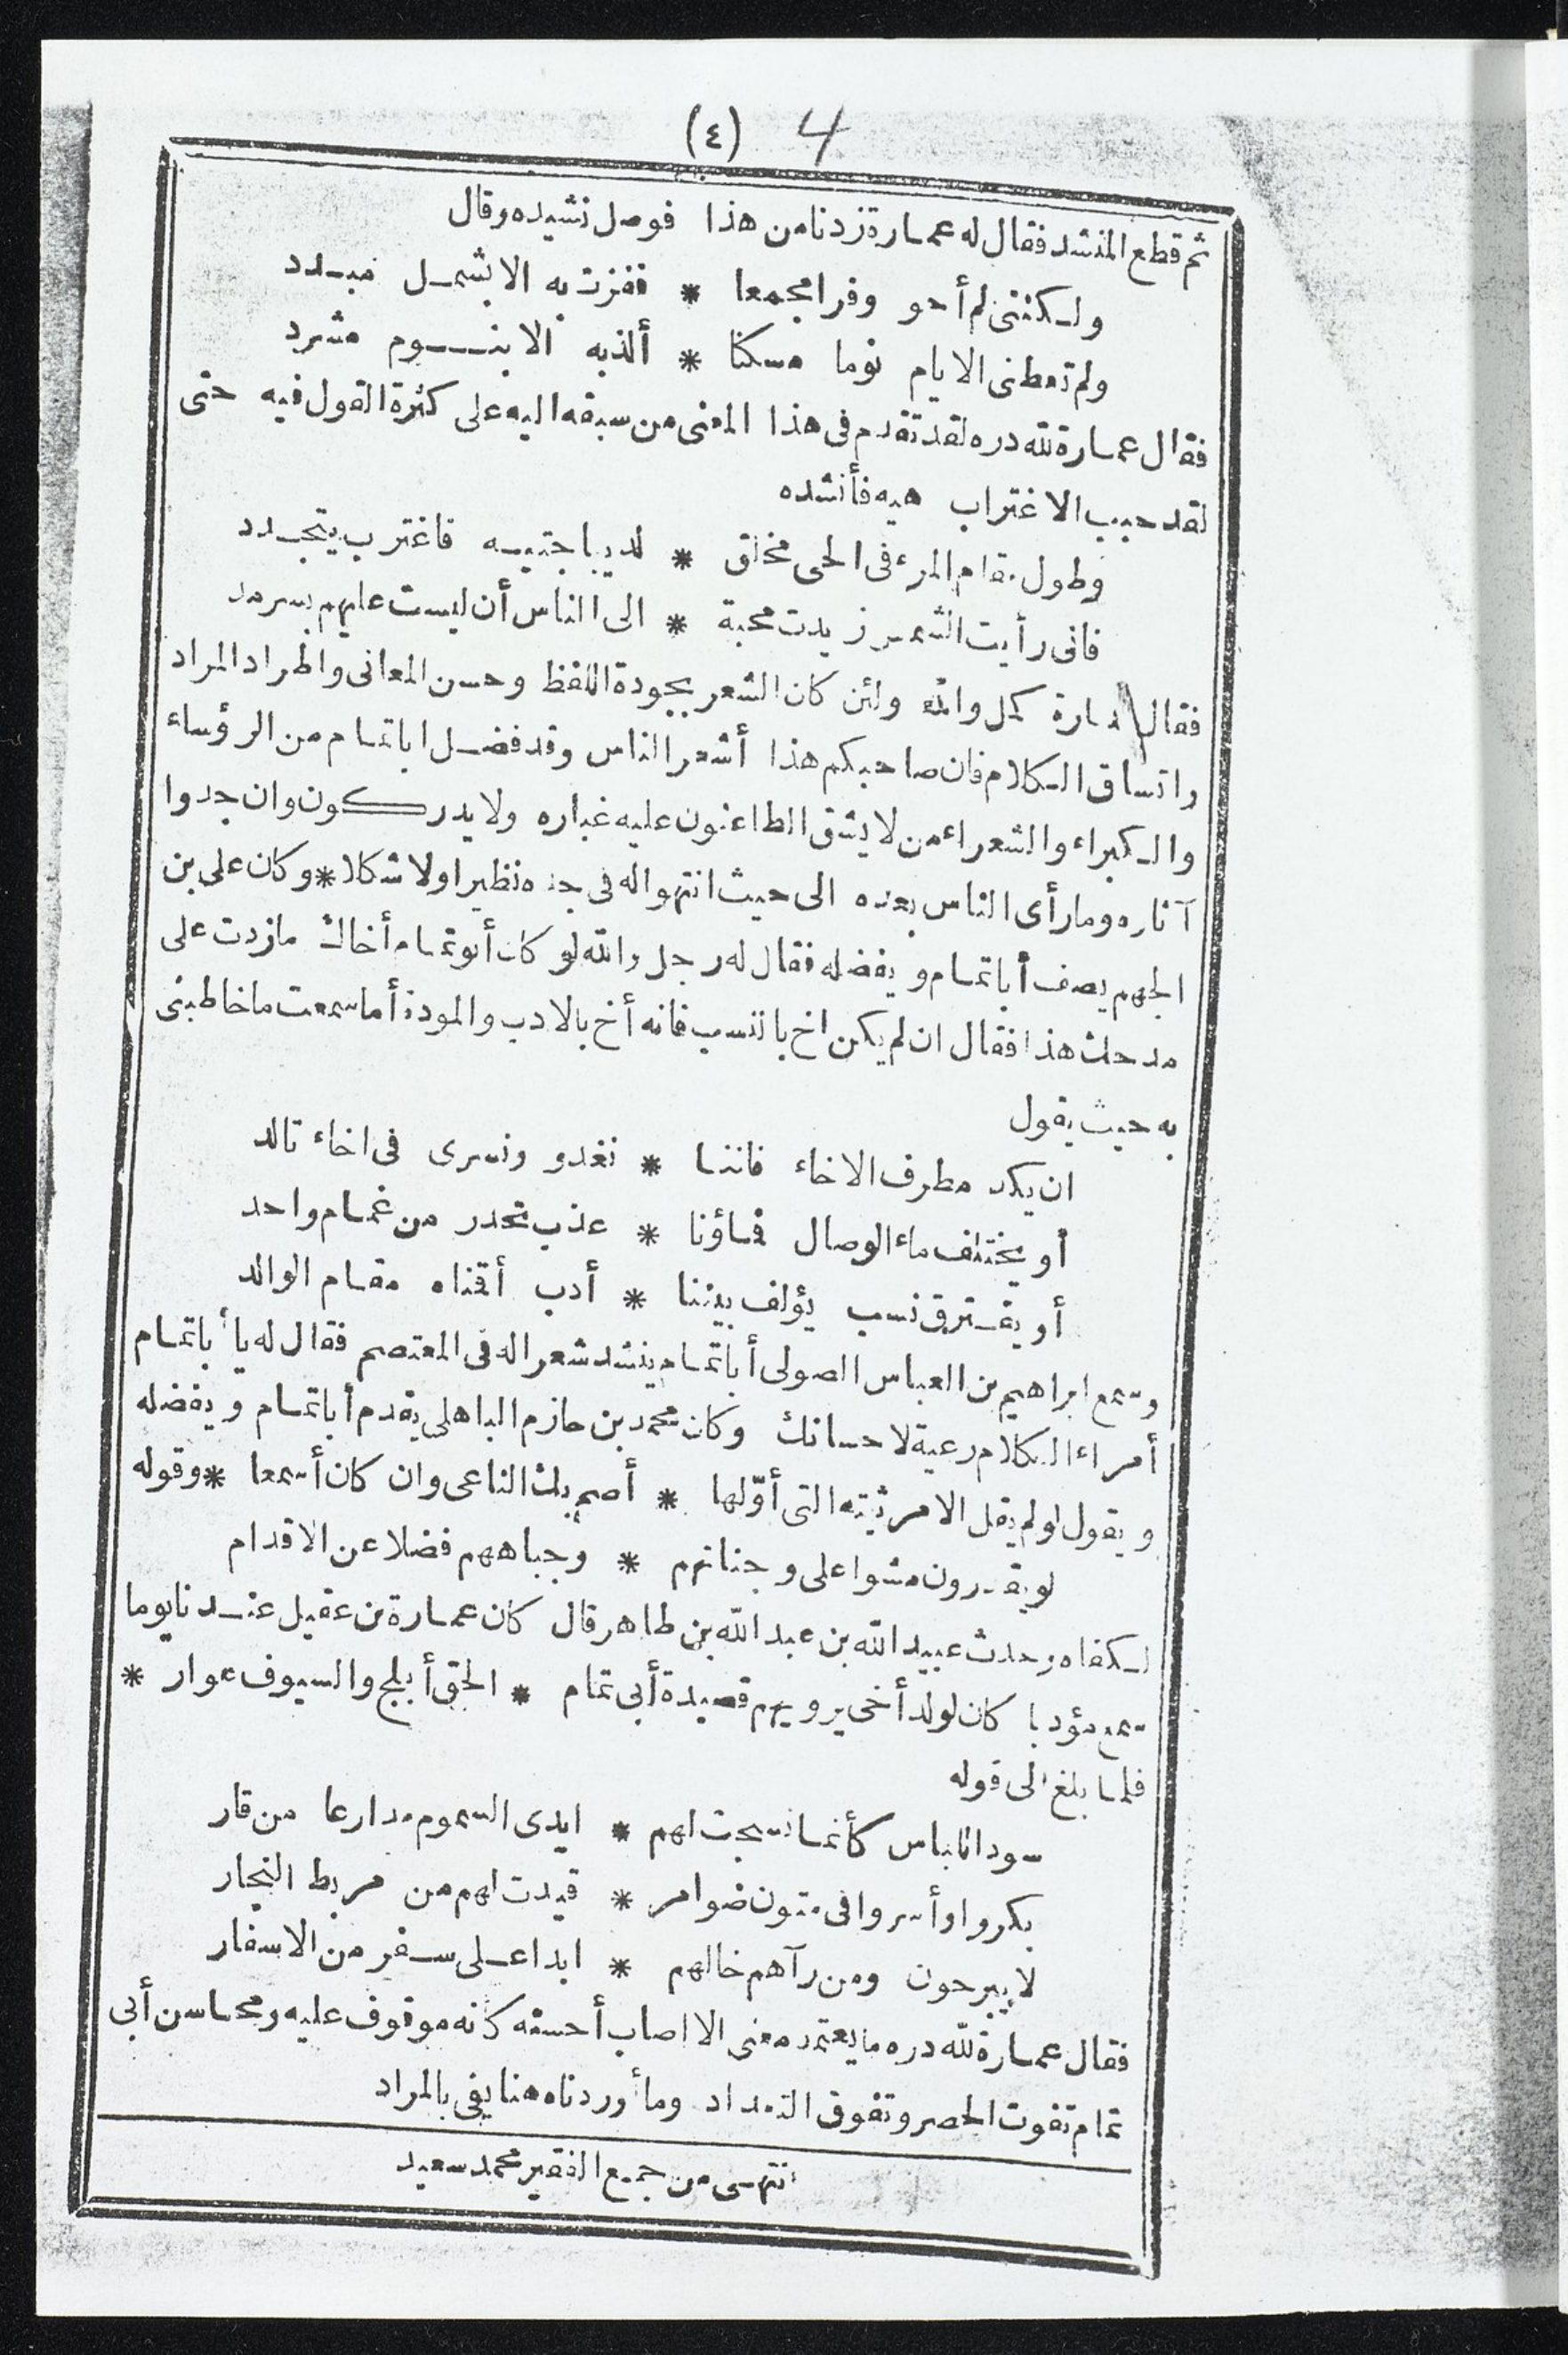 (٤) 4
ثم قطع المنشد فقال له عمارة زدنا من هذا فوصل نشيده وقال
ولكننى لم أحو وفرا مجمعا * ففزت به الا بشمل مبدد
ولم تعطنى الايام نوما مسكنا * ألذ به الا بنوم مشرد
فقال عمارة لله دره لقد تقدم فى هذا المعنى من سبقه اليه على كثرة القول فيه حتى
لقد حبب الاغتراب هيه فأنشده
وطول مقام المرء فى الحى مخلق * لديباجتيه فاغترب يتجدد
فانى رأيت الشمس زيدت محبة * الى الناس أن ليست عليهم بسرمد
فقال عمارة كمل والله ولئن كان الشعر بجودة اللفظ وحسن المعانى واطراد المراد
واتساق الكلام فان صاحبكم هذا أشعر الناس وقد فضل اباتمام من الرؤساء
والكبراء والشعراء من لا يشق الطاعنون عليه غباره ولا يدركون وان جدوا
آثاره وما رأى الناس بعده الى حيث انتهوا له فى جده نظيرا ولا شكلا * وكان على بن
الجهم يصف أباتمام ويفضله فقال له رجل والله لو كان أبوتمام أخاك مازدت على
مدحك هذا فقال ان لم يكن اخ بالنسب فانه أخ بالادب والمودة أما سمعت ماخاطبنى
به حيث يقول
ان يكد مطرف الاخاء فاننا * نغدو ونسرى فى اخاء تالد
أو يختلف ماء الوصال فماؤنا * عذب تحدر من غمام واحد
أو يفترق نسب يؤلف بيننا * أدب أقمناه مقام الوالد
وسمع ابراهيم بن العباس الصولى أباتمام ينشد شعرا له فى المعتصم فقال له يا أباتمام
أمراء الكلام رعية لاحسانك وكان محمد بن حازم الباهلى يقدم أباتمام ويفضله
ويقول لو لم يقل الا مرثيته التى أوّلها * أصم بك الناعى وان كان أسمعا * وقوله
لو يقدرون مشوا على وجناتهم * وجباههم فضلا عن الاقدام
لكفاه وحدث عبيد الله بن عبد الله بن طاهر قال كان عمارة بن عقيل عندنا يوما
سمع مؤدبا كان لولد أخى يرويهم قصيدة أبى تمام * الحق أبلج والسيوف عوار *
فلما بلغ الى قوله
سود اللباس كأنما نسجت لهم * ايدى السموم مدارعا من قار
بكروا وأسروا فى متون ضوامر * قيدت لهم من مربط النجار
لا يبرحون ومن رآهم خالهم * ابدا على سفر من الاسفار
فقال عمارة لله دره ما يعتمد معنى الا اصاب أحسنه كأنه موقوف عليه ومحاسن أبى
تمام تفوت الحصر وتفوق التعداد وما أوردناه هنا يفى بالمراد
انتهى من جميع الفقير محمد سعيد